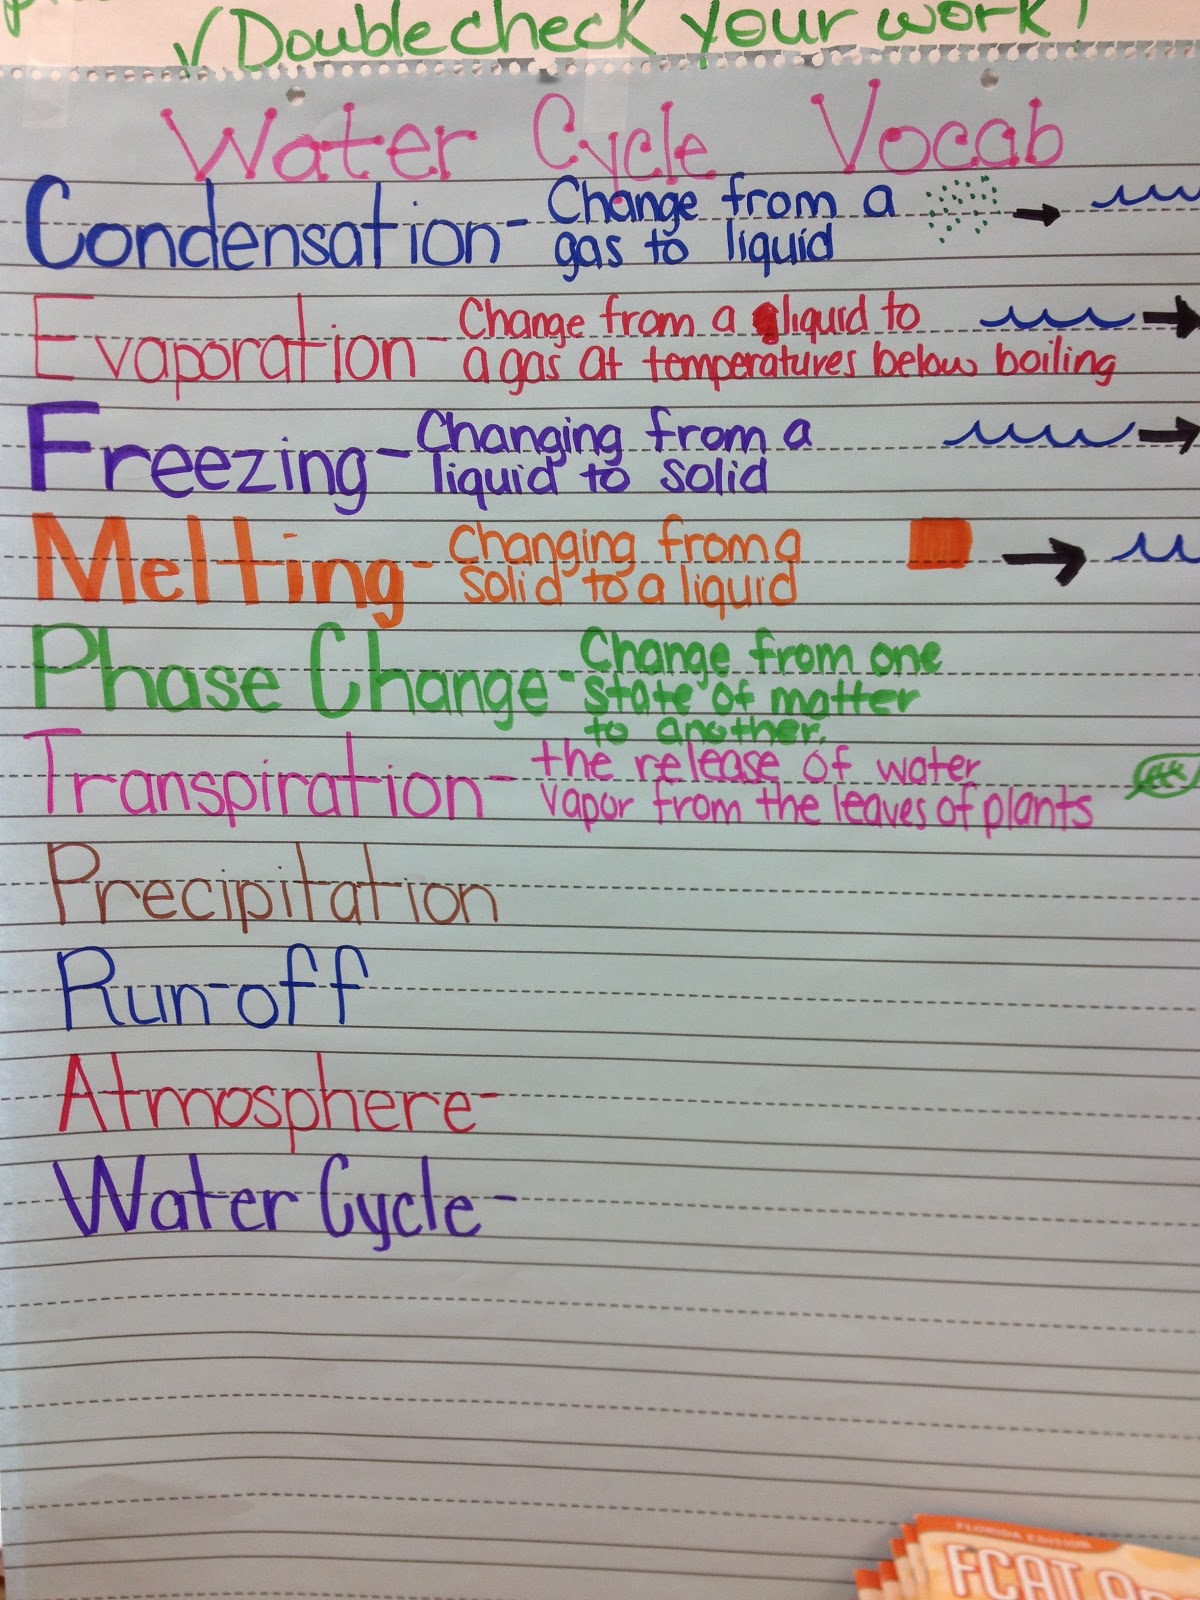 √ Doublecheck your work!
Water Cycle Vocab
Condensation- Change from a
gas to liquid
Evaporation- Change from a liquid to
a gas at temperatures below boiling
Freezing- Changing from a
liquid to solid
Melting- Changing from a
solid to a liquid
Phase Change- Change from one
state of matter
to another.
Transpiration- the release of water
vapor from the leaves of plants
Precipitation
Run-off
Atmosphere-
Water Cycle-
FLORIDA EDITION
FCAT